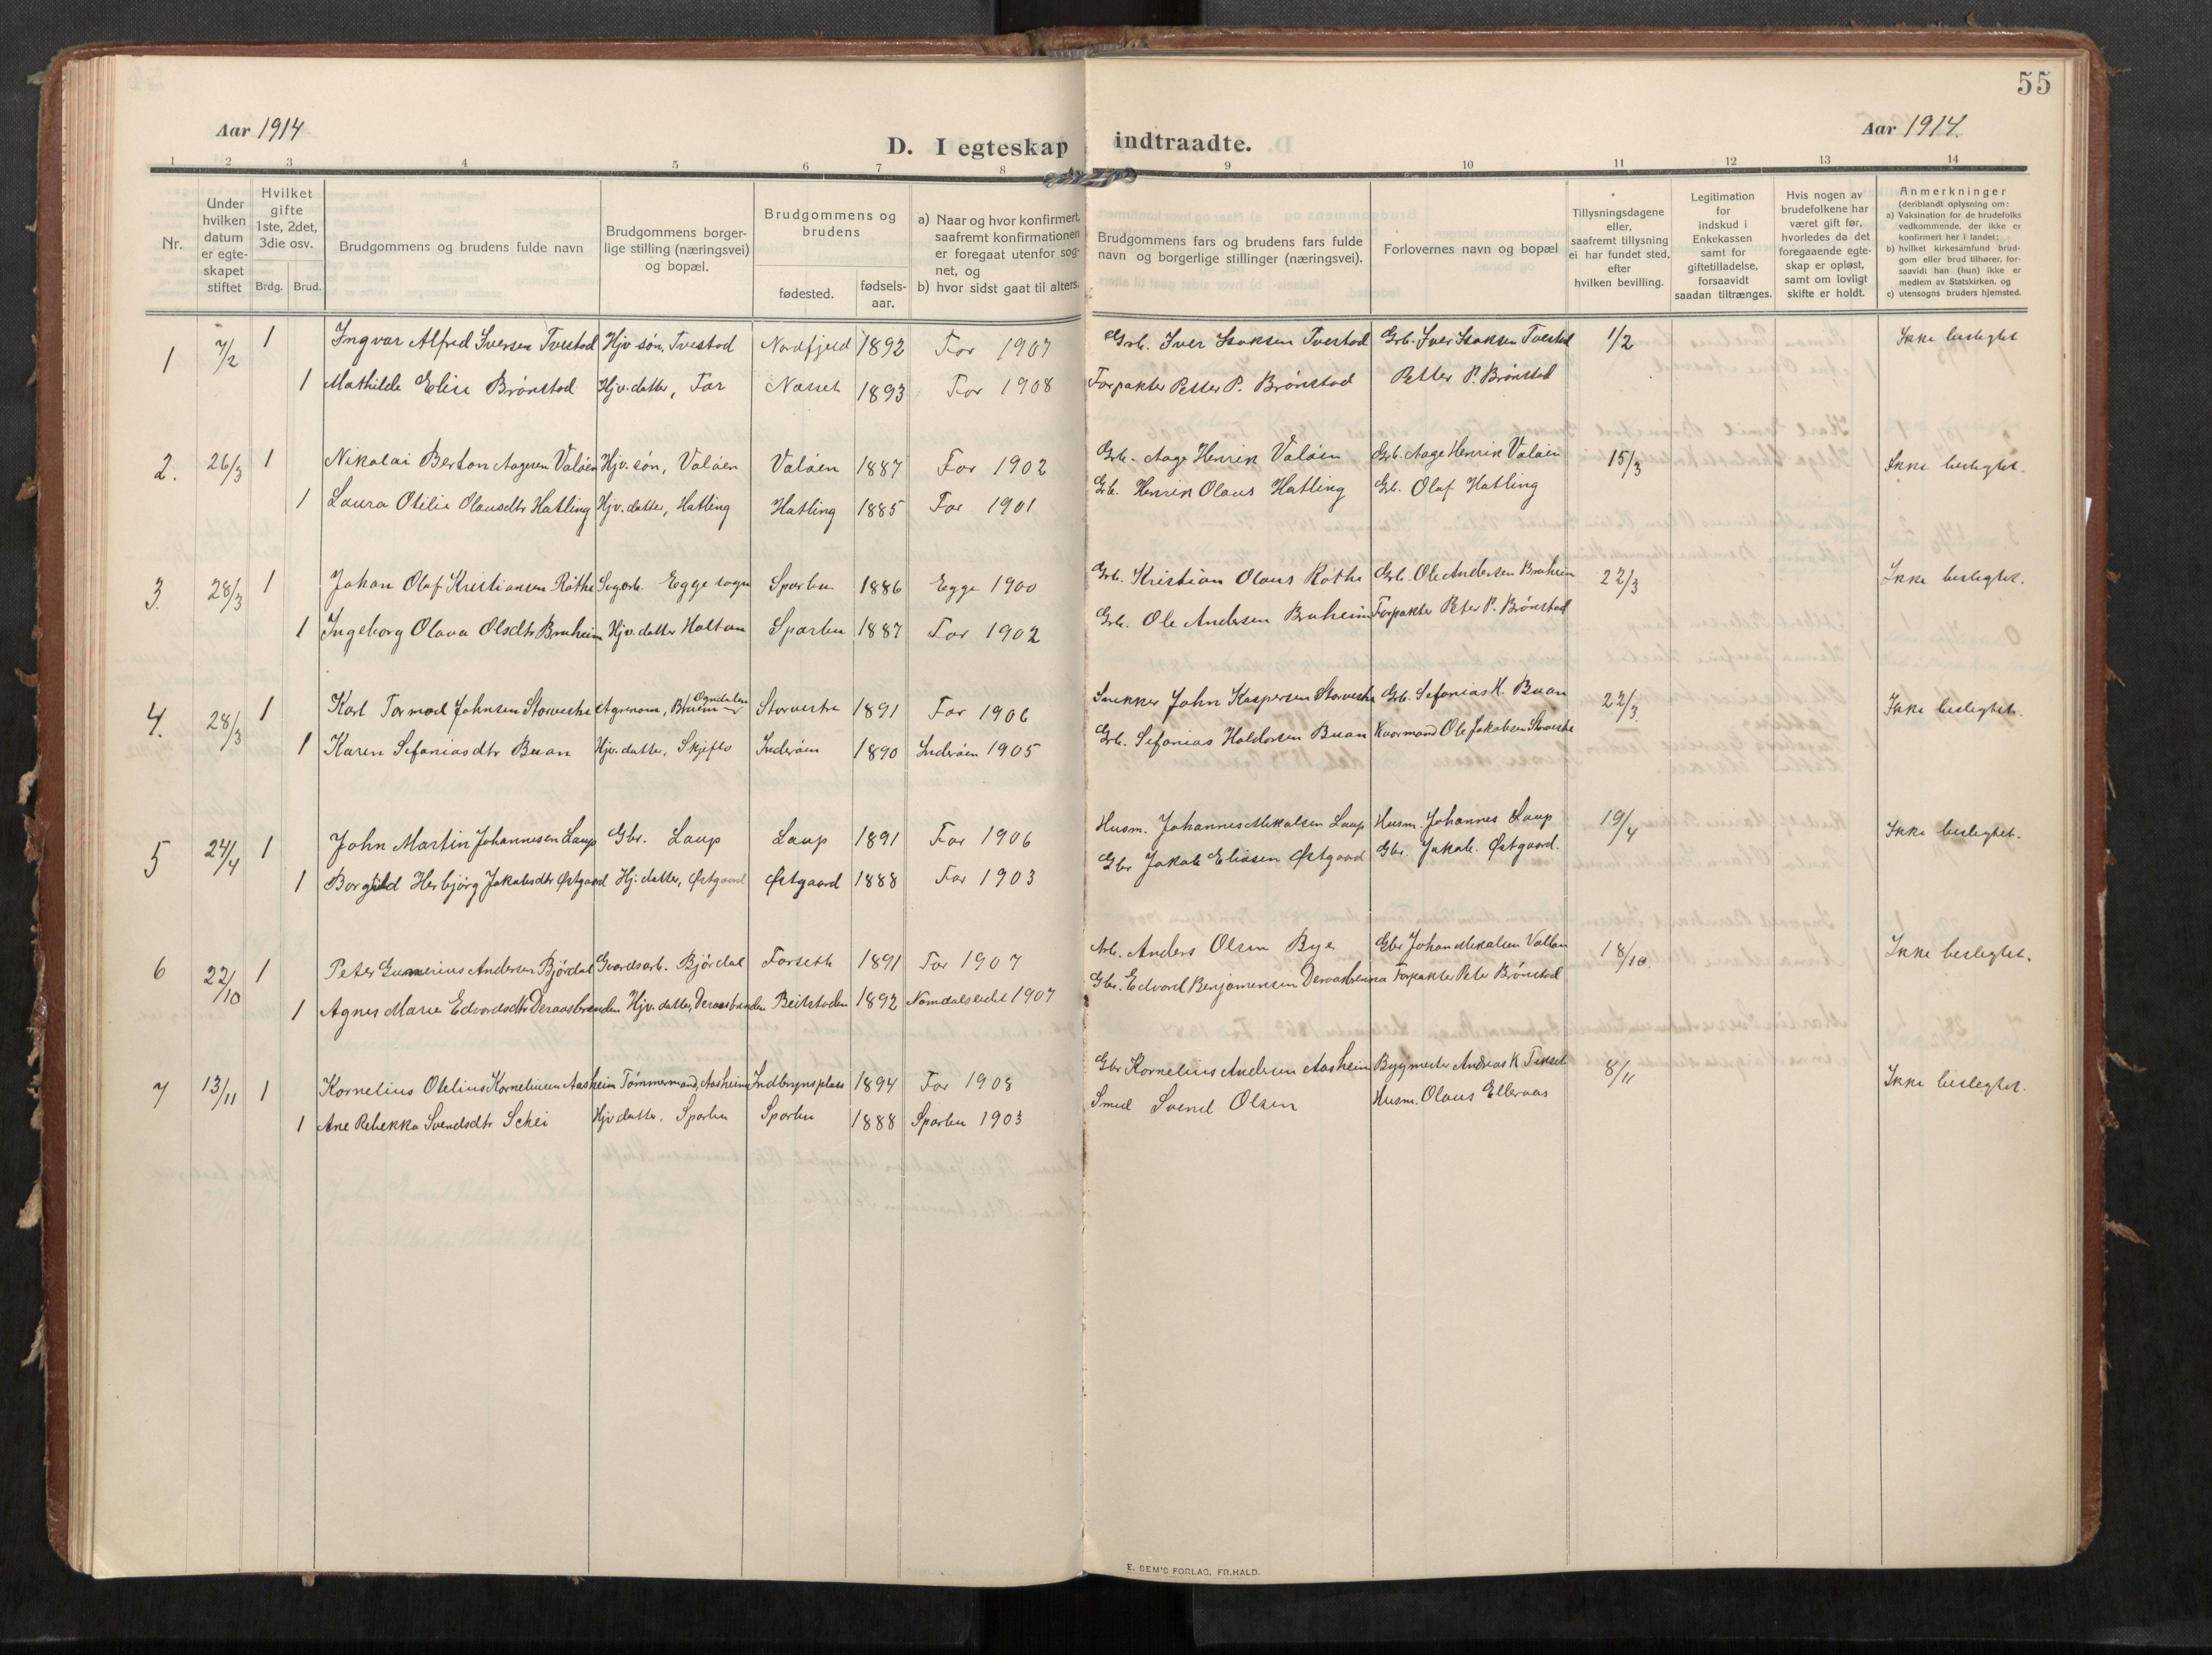 55
Aar 1914
Aar 1914.
D. I egteskap indtraadte.
1 2 3 4 5 6 7 8 9 10 11 12 13 14
Nr.
Under hvilken datum er egte- skapet stiftet
Hvilket gifte 1ste, 2det, 3die osv.
Brdg. Brud.
Brudgommens og brudens fulde navn
Brudgommens borger- lige stilling (næringsvei) og bopæl.
Brudgommens og brudens
fødested.
fødsels- aar.
a) Naar og hvor konfirmert, saafremt konfirmationen er foregaat utenfor sog- net, og
b) hvor sidst gaat til alters.
Brudgommens fars og brudens fars fulde navn og borgerlige stillinger (næringsvei).
Forlovernes navn og bopæl
Tillysningsdagene eller, saafremt tillysning ei har fundet sted, efter hvilken bevilling.
Legitimation for indskud i Enkekassen samt for giftetilladelse, forsaavidt saadan tiltrænges.
Hvis nogen av brudefolkene har været gift før, hvorledes da det foregaaende egte- skap er opløst, samt om lovligt skifte er holdt.
Anmerkninger (deriblandt oplysning om:
a) Vaksination for de brudefolks vedkommende, der ikke er konfirmert her i landet;
b) hvilket kirkesamfund brud- gom eller brud tilhører, for- saavidt han (hun) ikke er medlem av Statskirken, og
c) utensogns bruders hjemsted.
1 7/2 1 Ingvar Alfred Iversen Tvestad Hjv. søn, Tvestad Nordfjeld 1892 For 1907 Grb. Iver Isaksen Tvestad Grb. Iver Isaksen Tvestad 1/2 Ikke beslegtet
1 Mathilde Elise Brønstad Hjv. datter, For Næsset 1893 For 1908 Forpakter Petter P. Brønstad Petter P. Brønstad
2. 26/3 1 Nikolai Berton Aagesen Valøen Hjv. søn, Valøen Valøen 1887 For 1902 Grb. Aage Henrik Valøen Grb. Aage Henrik Valøen 15/3 Ikke beslegtet.
1 Laura Otilie Olausdtr Hatling Hjv. datter, Hatling Hatling 1885 For 1901 Grb. Henrik Olaus Hatling Grb. Olaf Hatling
3. 28/3 1 Johan Olaf Kristiansen Røthe Egge sogn Sparbu 1886 Egge 1900 Grb. Kristian Olaus Røthe Grb. Ole Andersen Bruheim 22/3 Ikke beslegtet.
1 Ingeborg Olava Olsdtr Bruheim Hjv. datter Holtan Sparbu 1887 For 1902 Grb. Ole Andersen Bruheim Forpakter Peter P. Brønstad
4. 28/3 1 Karl Tormod Johnsen Storvestre Agronom, Ogndalen Storvestre 1891 For 1906 Snekker John Kaspersen Storvestre Grb. Sefanias H. Buan 22/3. Ikke beslegtet.
1 Karen Sefaniasdtr Buan Hjv. datter, Skjeflo Inderøen 1890 Inderøen 1905 Grb. Sefanias Haldorsen Buan Kaarmand Ole Jakobsen Storvestre
5 24/4 1 John Martin Johannesen Laup Gbr. Laup Laup 1891 For 1906 Husm. Johannes Mikalsen Laup Husm. Johannes Laup 19/4 Ikke beslegtet.
1 Borghild Herbjørg Jakobsdtr Østgaard Hj. datter, Østgaard Østgaard 1888 For 1903 Gbr Jakob Eliasen Østgaard Gbr. Jakob. Østgaard.
6 22/10 1 Peter Gunnerius Andersen Bjørdal Gaardsarb. Bjørdal Forseth 1891 For 1907 Arb. Anders Olsen Bye Gbr Johan Mikalsen Vollan 18/10. Ikke beslegtet.
1 Agnes Marie Edvardsdtr Deraasbrenden Hjv. datter, Deraasbrenden Beitstaden 1892 Namdalseidet 1907 Gbr. Edvard Benjaminsen Deraasbrenna Forpakter Peter Brønstad
7 13/11 1 Kornelius Otelius Korneliusen Aasheim Tømmermand, Aasheim Indbrynsplass 1894 For 1908 Gbr Kornelius Andersen Aasheim Bygmester Andreas K Fikset 8/11 Ikke beslegtet.
1 Ane Rebekka Svendsdtr Schei Hjv datter. Sparbu Sparbu 1888 Sparbu 1903 Smed Svend Olsen Husm. Olaus Elleraas
E. SEM'S FORLAG, FR.HALD.